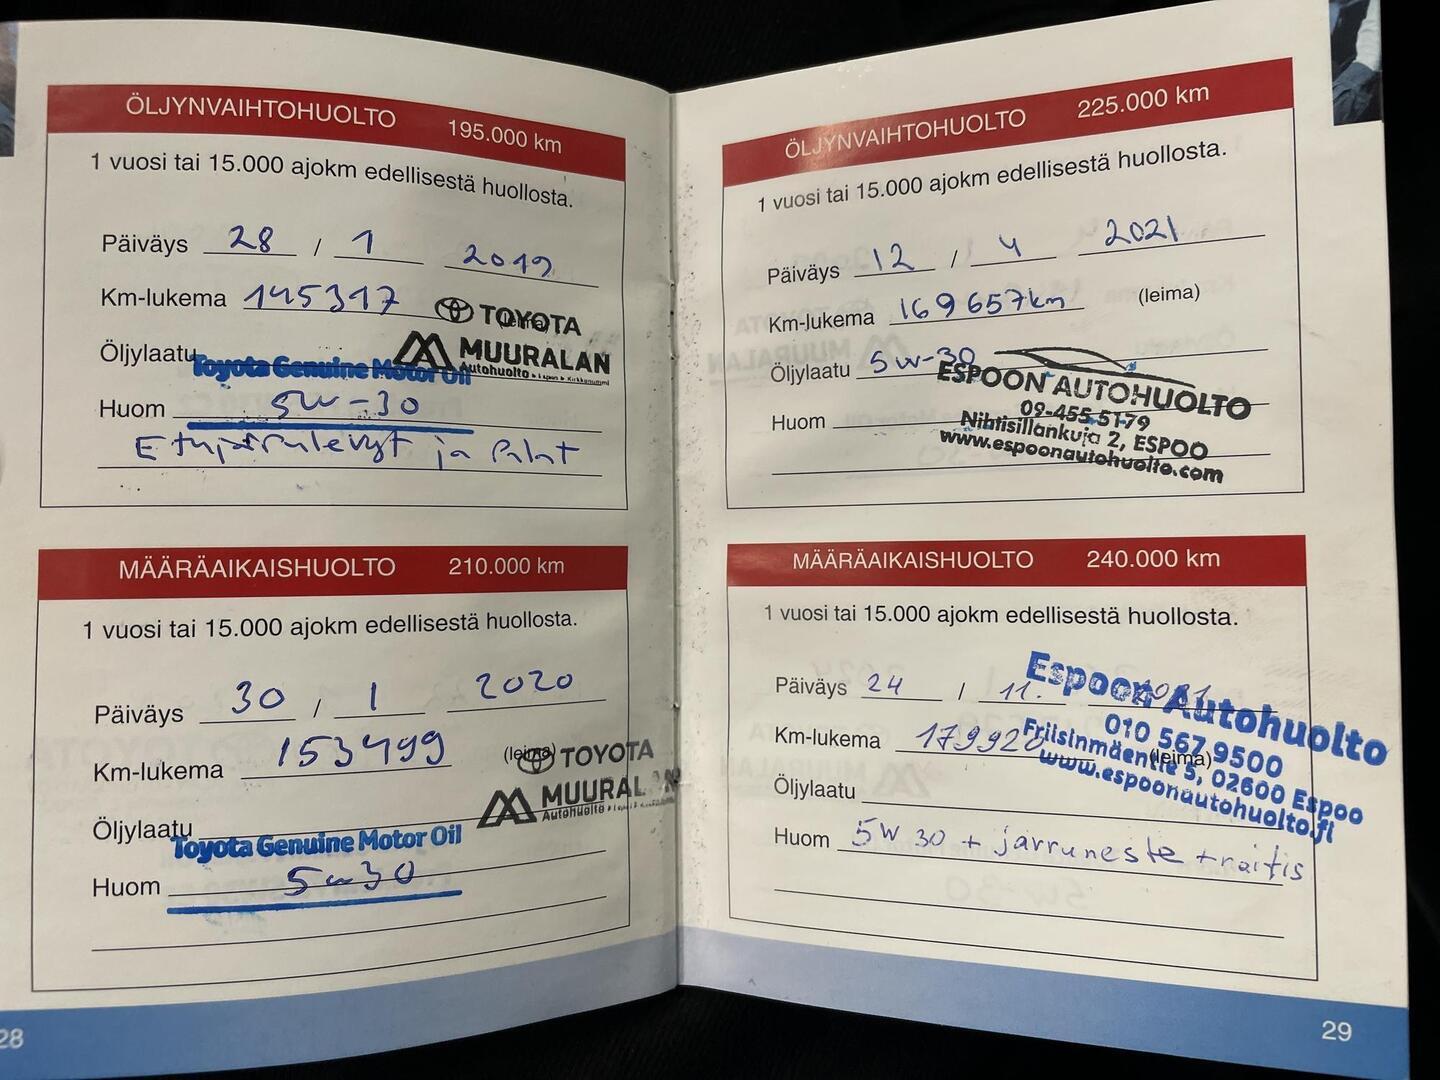 ÖLJYNVAIHTOHUOLTO 195.000 km
1 vuosi tai 15.000 ajokm edellisestä huollosta.
Päiväys 28 / 1 2019
Km-lukema 145317
(leima)
TOYOTA
MUURALAN
Autohuolto
Öljylaatu
Toyota Genuine Motor Oil
Huom 5W-30
Etujarrulevyt ja Palat
MÄÄRÄAIKAISHUOLTO 210.000 km
1 vuosi tai 15.000 ajokm edellisestä huollosta.
Päiväys 30 / 1 2020
Km-lukema 153499
(leima)
TOYOTA
MUURAL
Autohuolto
Öljylaatu
Toyota Genuine Motor Oil
Huom 5w30
28
ÖLJYNVAIHTOHUOLTO 225.000 km
1 vuosi tai 15.000 ajokm edellisestä huollosta.
Päiväys 12 / 4 2021
Km-lukema 169657km (leima)
Öljylaatu 5w-30
ESPOON AUTOHUOLTO
09-455 5179
Nihtisillankuja 2, ESPOO
www.espoonautohuolto.com
Huom
MÄÄRÄAIKAISHUOLTO 240.000 km
1 vuosi tai 15.000 ajokm edellisestä huollosta.
Päiväys 24 / 11. 2021
Km-lukema 179920
(leima)
Espoon Autohuolto
010 567 9500
Friisinmäentie 5, 02600 Espoo
www.espoonautohuolto.fi
Öljylaatu
Huom 5W 30 + jarruneste + raitis
29